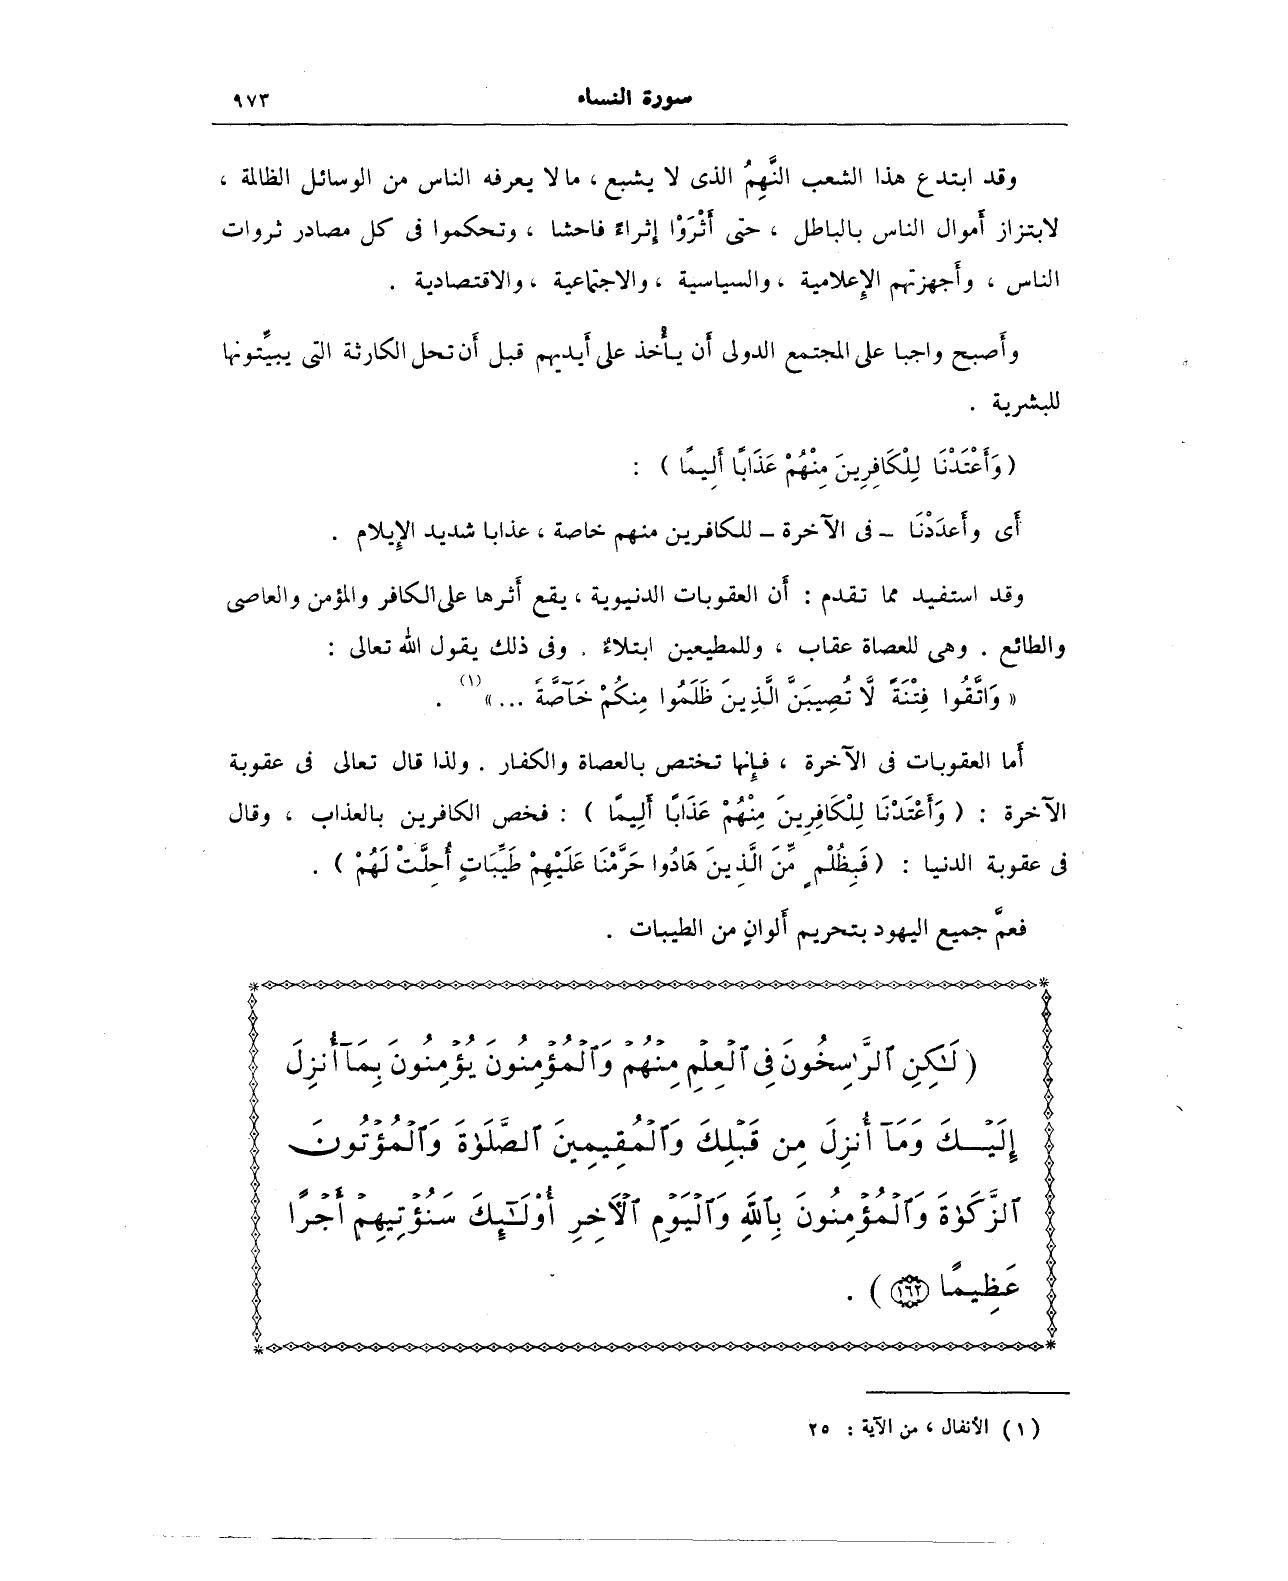 سورة النساء ٩٧٣
وقد ابتدع هذا الشعب النَّهِمُ الذى لا يشبع ، مالا يعرفه الناس من الوسائل الظالمة ،
لابتزاز أموال الناس بالباطل ، حتى أَثْرَوْا إثراءً فاحشا ، وتحكموا فى كل مصادر ثروات
الناس ، وأجهزتهم الإعلامية ، والسياسية ، والاجتماعية ، والاقتصادية .
وأصبح واجبا على المجتمع الدولى أن يأخذ على أيديهم قبل أن تحل الكارثة التى يبيِّتونها
للبشرية .
( وَأَعْتَدْنَا لِلْكَافِرِينَ مِنْهُمْ عَذَابًا أَلِيمًا ) :
أى وأعدَدْنَا – فى الآخرة – للكافرين منهم خاصة ، عذابا شديد الإيلام .
وقد استفيد مما تقدم : أن العقوبات الدنيوية ، يقع أثرها على الكافر والمؤمن والعاصى
والطائع . وهى للعصاة عقاب ، وللمطيعين ابتلاءٌ . وفى ذلك يقول الله تعالى :
« وَاتَّقُوا فِتْنَةً لَّا تُصِيبَنَّ الَّذِينَ ظَلَمُوا مِنكُمْ خَآصَّةً ... »(١) .
أما العقوبات فى الآخرة ، فإنها تختص بالعصاة والكفار . ولذا قال تعالى فى عقوبة
الآخرة : ( وَأَعْتَدْنَا لِلْكَافِرِينَ مِنْهُمْ عَذَابًا أَلِيمًا ) : فخص الكافرين بالعذاب ، وقال
فى عقوبة الدنيا : ( فَبِظُلْمٍ مِّنَ الَّذِينَ هَادُوا حَرَّمْنَا عَلَيْهِمْ طَيِّبَاتٍ أُحِلَّتْ لَهُمْ ) .
فعمَّ جميع اليهود بتحريم ألوانٍ من الطيبات .
( لَّٰكِنِ ٱلرَّٰسِخُونَ فِى ٱلْعِلْمِ مِنْهُمْ وَٱلْمُؤْمِنُونَ يُؤْمِنُونَ بِمَآ أُنزِلَ
إِلَيْكَ وَمَآ أُنزِلَ مِن قَبْلِكَ وَٱلْمُقِيمِينَ ٱلصَّلَوٰةَ وَٱلْمُؤْتُونَ
ٱلزَّكَوٰةَ وَٱلْمُؤْمِنُونَ بِٱللَّهِ وَٱلْيَوْمِ ٱلْأَخِرِ أُوْلَٰٓئِكَ سَنُؤْتِيهِمْ أَجْرًا
عَظِيمًا ١٦٢ ) .
( ١ ) الأنفال ، من الآية : ٢٥